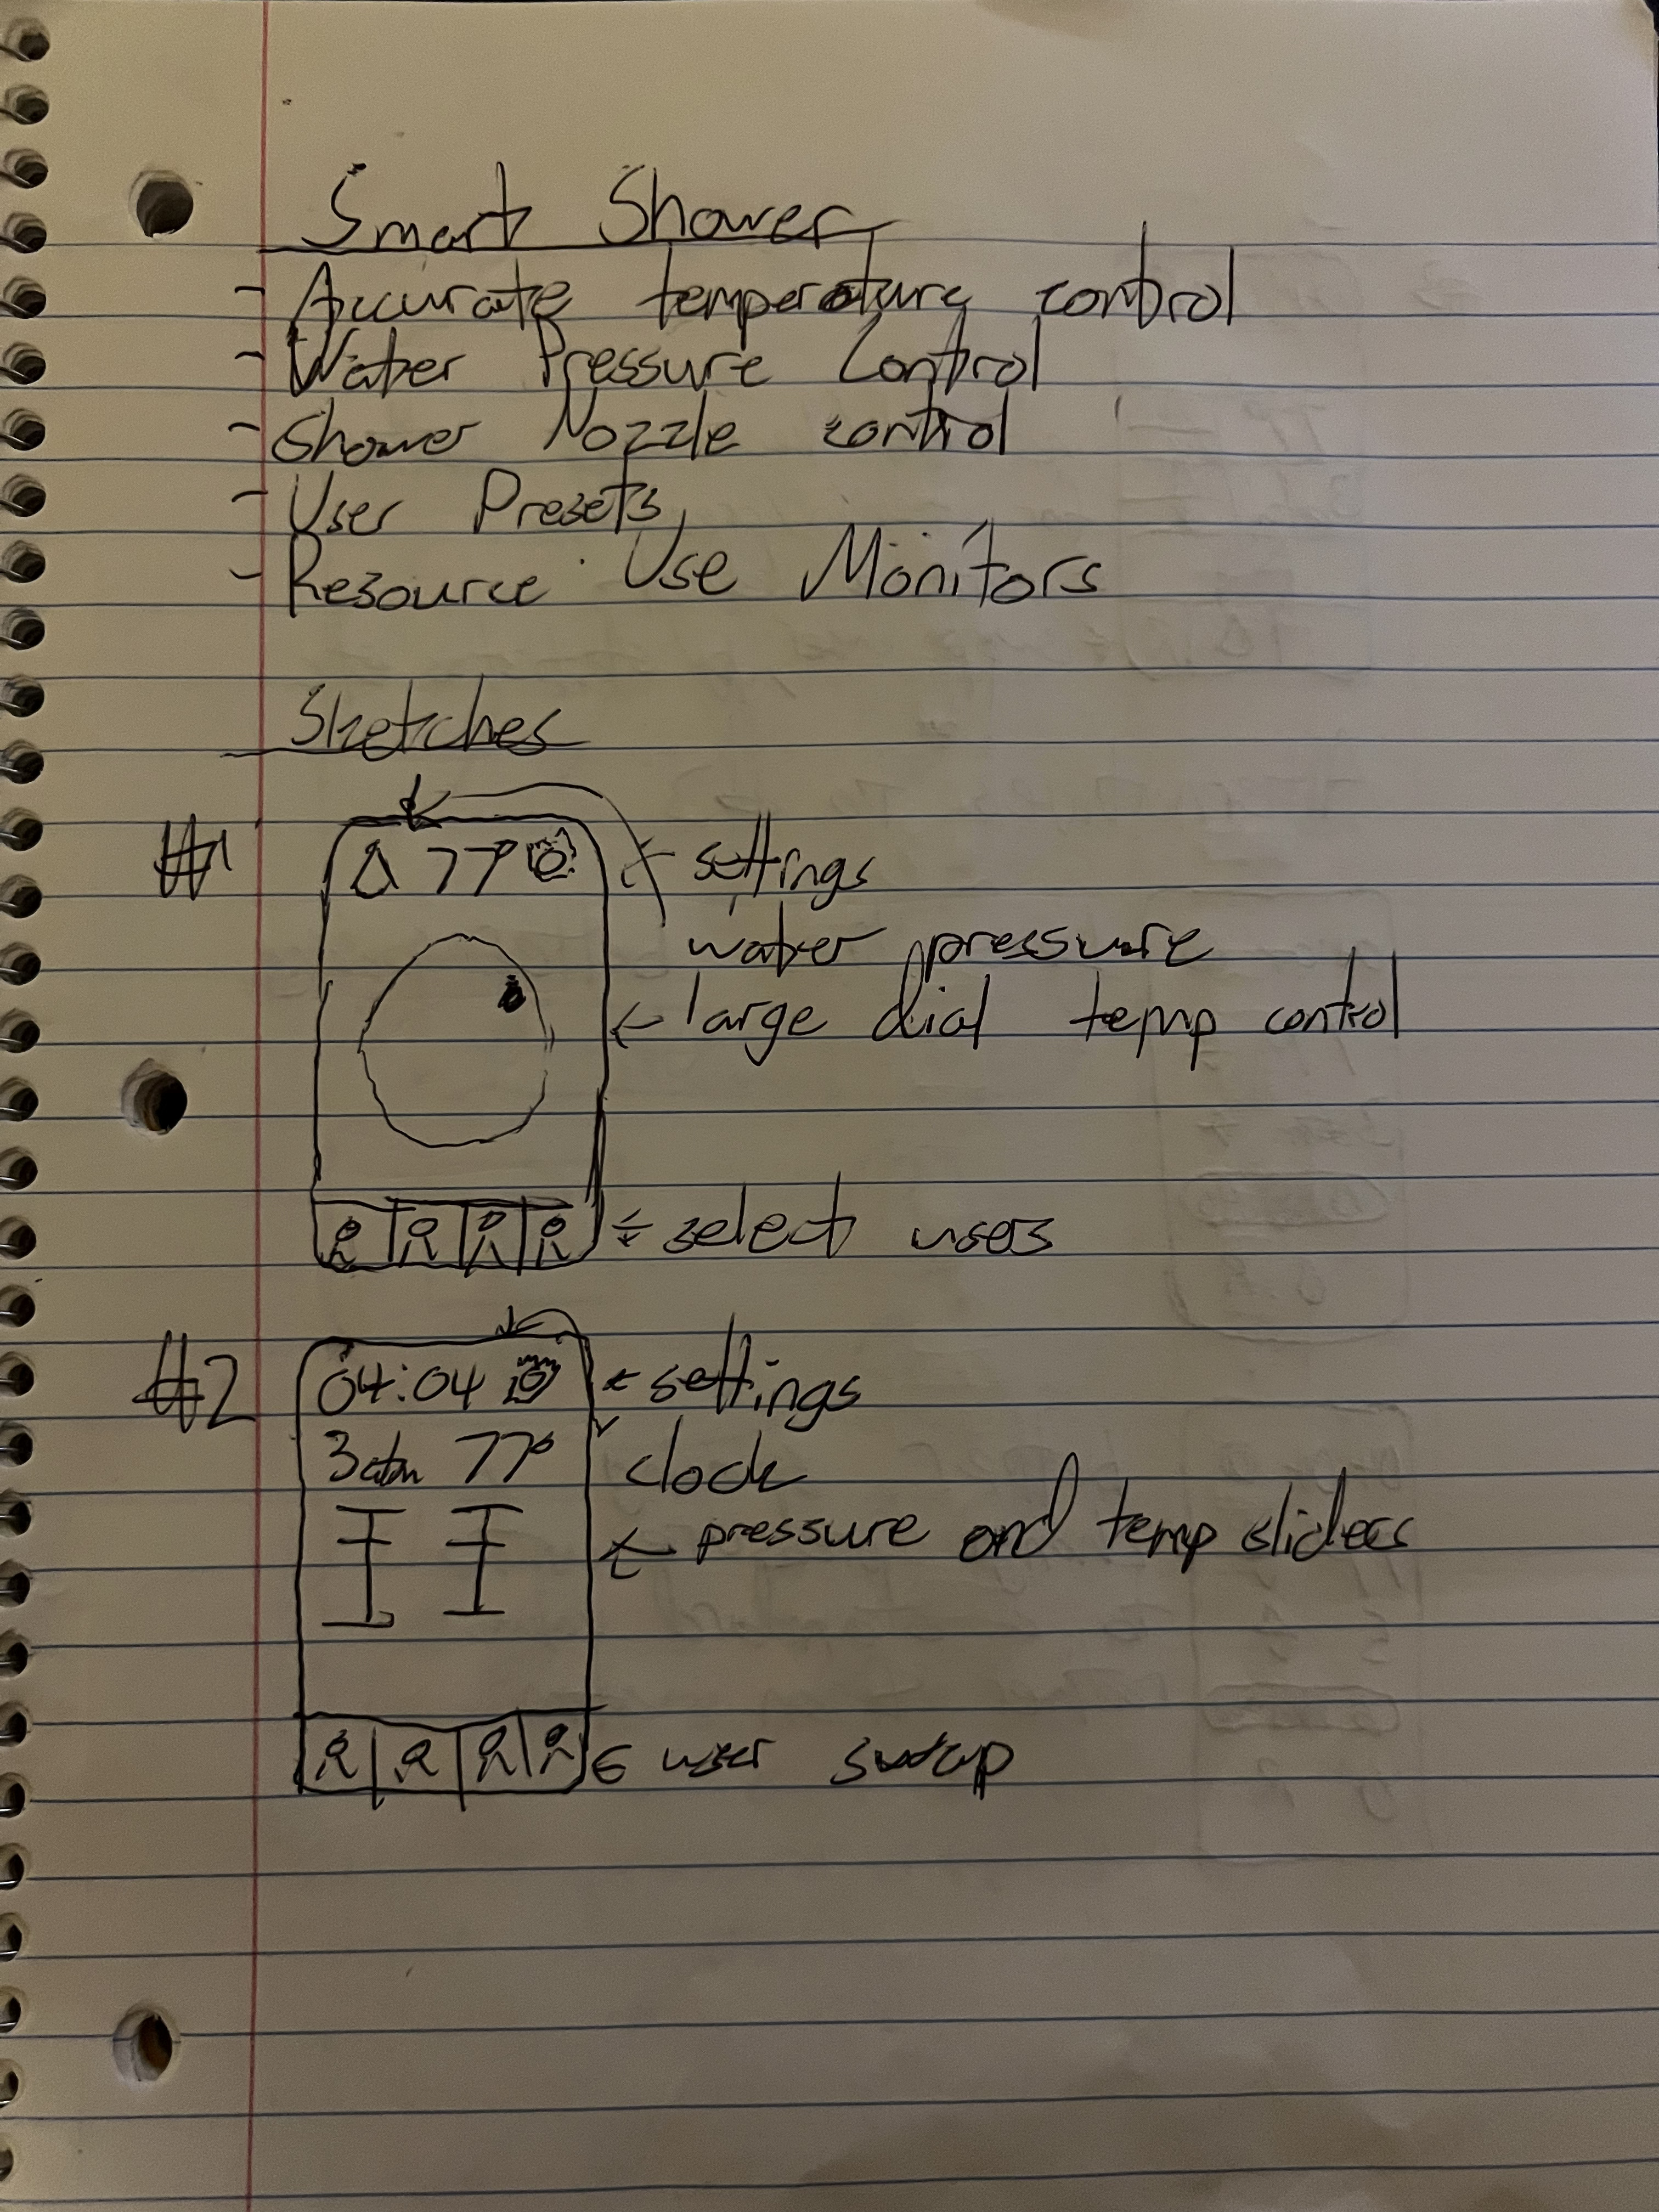 Smart Shower
- Accurate temperature control
- Water Pressure Control
- Shower Nozzle control
- User Presets
- Resource Use Monitors
Sketches
#1
77°
← settings
water pressure
← large dial temp control
← select user
#2
04:04
← settings
3atm 77°
clock
← pressure and temp sliders
← user swap